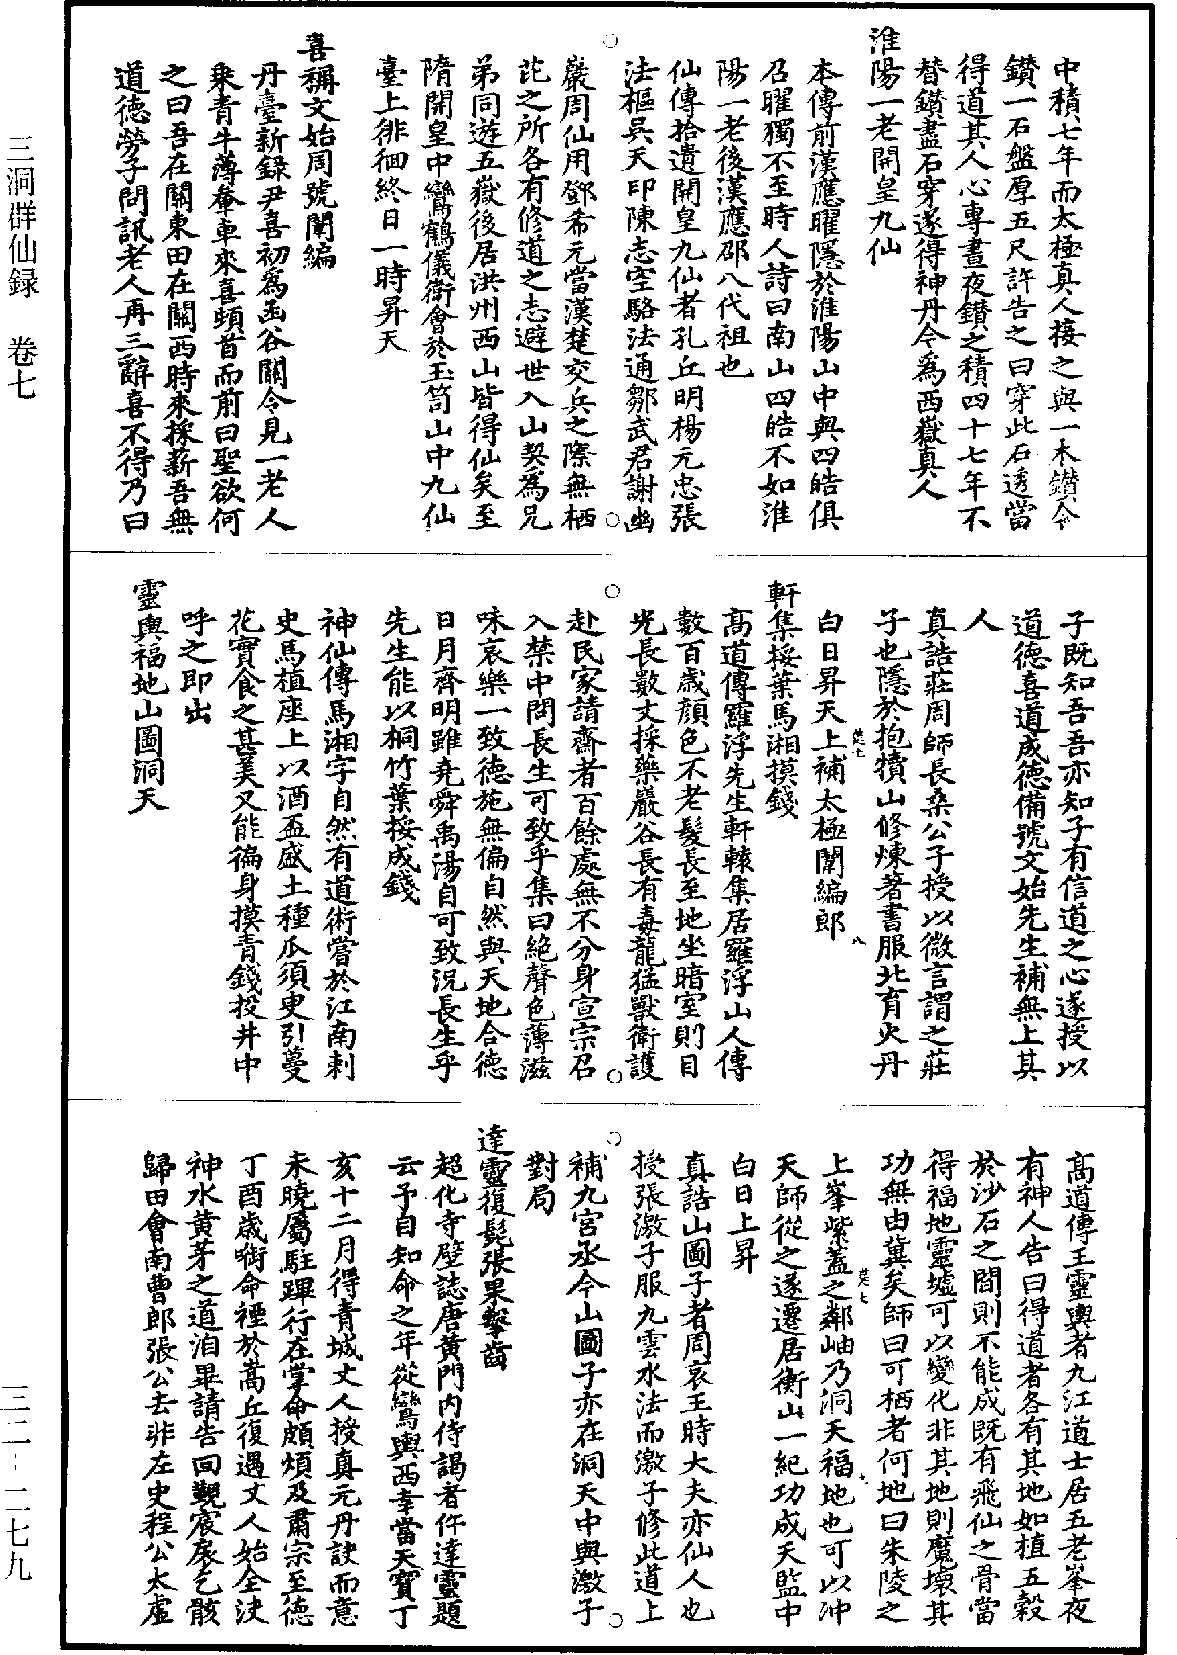 三洞群仙録　卷七
中積七年而太極真人接之與一木鑽令
鑚一石盤厚五尺許告之曰穿此石透當
得道其人心專晝夜鑽之積四十七年不
替鑚盡石穿遂得神丹令爲西嶽真人
淮陽一老開皇九仙
本傳前漢應曜隱於淮陽山中與四皓俱
召曜獨不至時人詩曰南山四皓不如淮
陽一老後漢應邵八代祖也
仙傳拾遺開皇九仙者孔丘明楊元忠張
法樞吳天印陳志空駱法通鄒武君謝幽
巖周仙用鄧希元當漢楚交兵之際無栖
芘之所各有修道之志避世入山契為兄
弟同遊五嶽後居洪州西山皆得仙矣至
隋開皇中鸞鶴儀衛會於玉笥山中九仙
臺上徘徊終日一時昇天
喜稱文始周號闈編
丹臺新録尹喜初爲函谷關令見一老人
乘青牛薄軬車來喜頓首而前曰聖欲何
之曰吾在關東田在關西時來採薪吾無
道德勞子問訊老人再三辭喜不得乃曰
子既知吾吾亦知子有信道之心遂授以
道德喜道成德備號文始先生補無上真
人
真誥莊周師長桑公子授以微言謂之莊
子也隱於抱犢山修煉著書服北育火丹
白日昇天上補太極闈編郎
軒集挼葉馬湘摸錢
髙道傳羅浮先生軒轅集居羅浮山人傳
數百歲顏色不老髮長至地坐暗室則目
光長數丈採藥巖谷長有毒龍猛獸衛護
赴民家請齋者百餘處無不分身宣宗召
入禁中問長生可致乎集曰絶聲色薄滋
味哀樂一致德施無偏自然與天地合德
日月齊明雖堯舜禹湯自可致況長生乎
先生能以桐竹葉挼成錢
神仙傳馬湘字自然有道術嘗於江南刺
史馬植座上以酒盃盛土種瓜須臾引蔓
花實食之甚美又能徧身摸青錢投井中
呼之即出
靈輿福地山圖洞天
髙道傳王靈輿者九江道士居五老峯夜
有神人告曰得道者各有其地如植五穀
於沙石之間則不能成既有飛仙之骨當
得福地靈墟可以變化非其地則魔壞其
功無由冀矣師曰可栖者何地曰朱陵之
上峯紫蓋之鄰岫乃洞天福地也可以沖
天師從之遂遷居衡山一紀功成天監中
白日上昇
真誥山圖子者周哀王時大夫亦仙人也
授張激子服九雲水法而激子修此道上
補九宮丞今山圖子亦在洞天中與激子
對局
達靈復髭張果擊齒
超化寺壁誌唐黄門内侍謁者仵達靈題
云予自知命之年從鸞輿西幸當天寶丁
亥十二月得青城丈人授真元丹訣而意
未曉屬駐蹕行在掌命頗煩及肅宗至德
丁酉歲銜命禋於嵩丘復遇丈人始全決
神水黄芽之道洎畢請告回覲宸扆乞骸
歸田會南曹郎張公去非左史程公太虛
三二－二七九